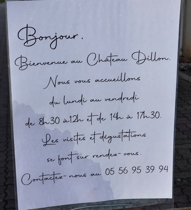 Bonjour,
Bienvenue au Château Dillon.
Nous vous accueillons
du lundi au vendredi
de 8h30 à 12h et de 14h à 17h30.
Les visites et dégustations
se font sur rendez-vous.
Contactez-nous au 05 56 95 39 94